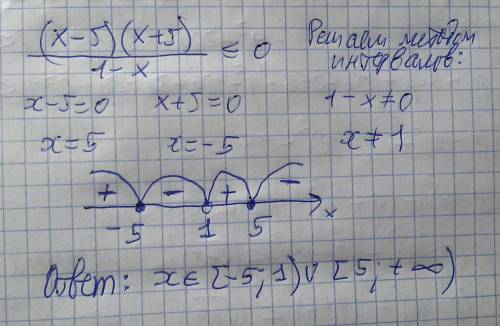 (x-5)(x+5) / 1-x ≤ 0
Решаем методом
интервалов:
x-5=0 x+5=0 1-x≠0
x=5 x=-5 x≠1
+ - + -
-5 1 5 x
Ответ: x∈[-5;1)∪[5;+∞)